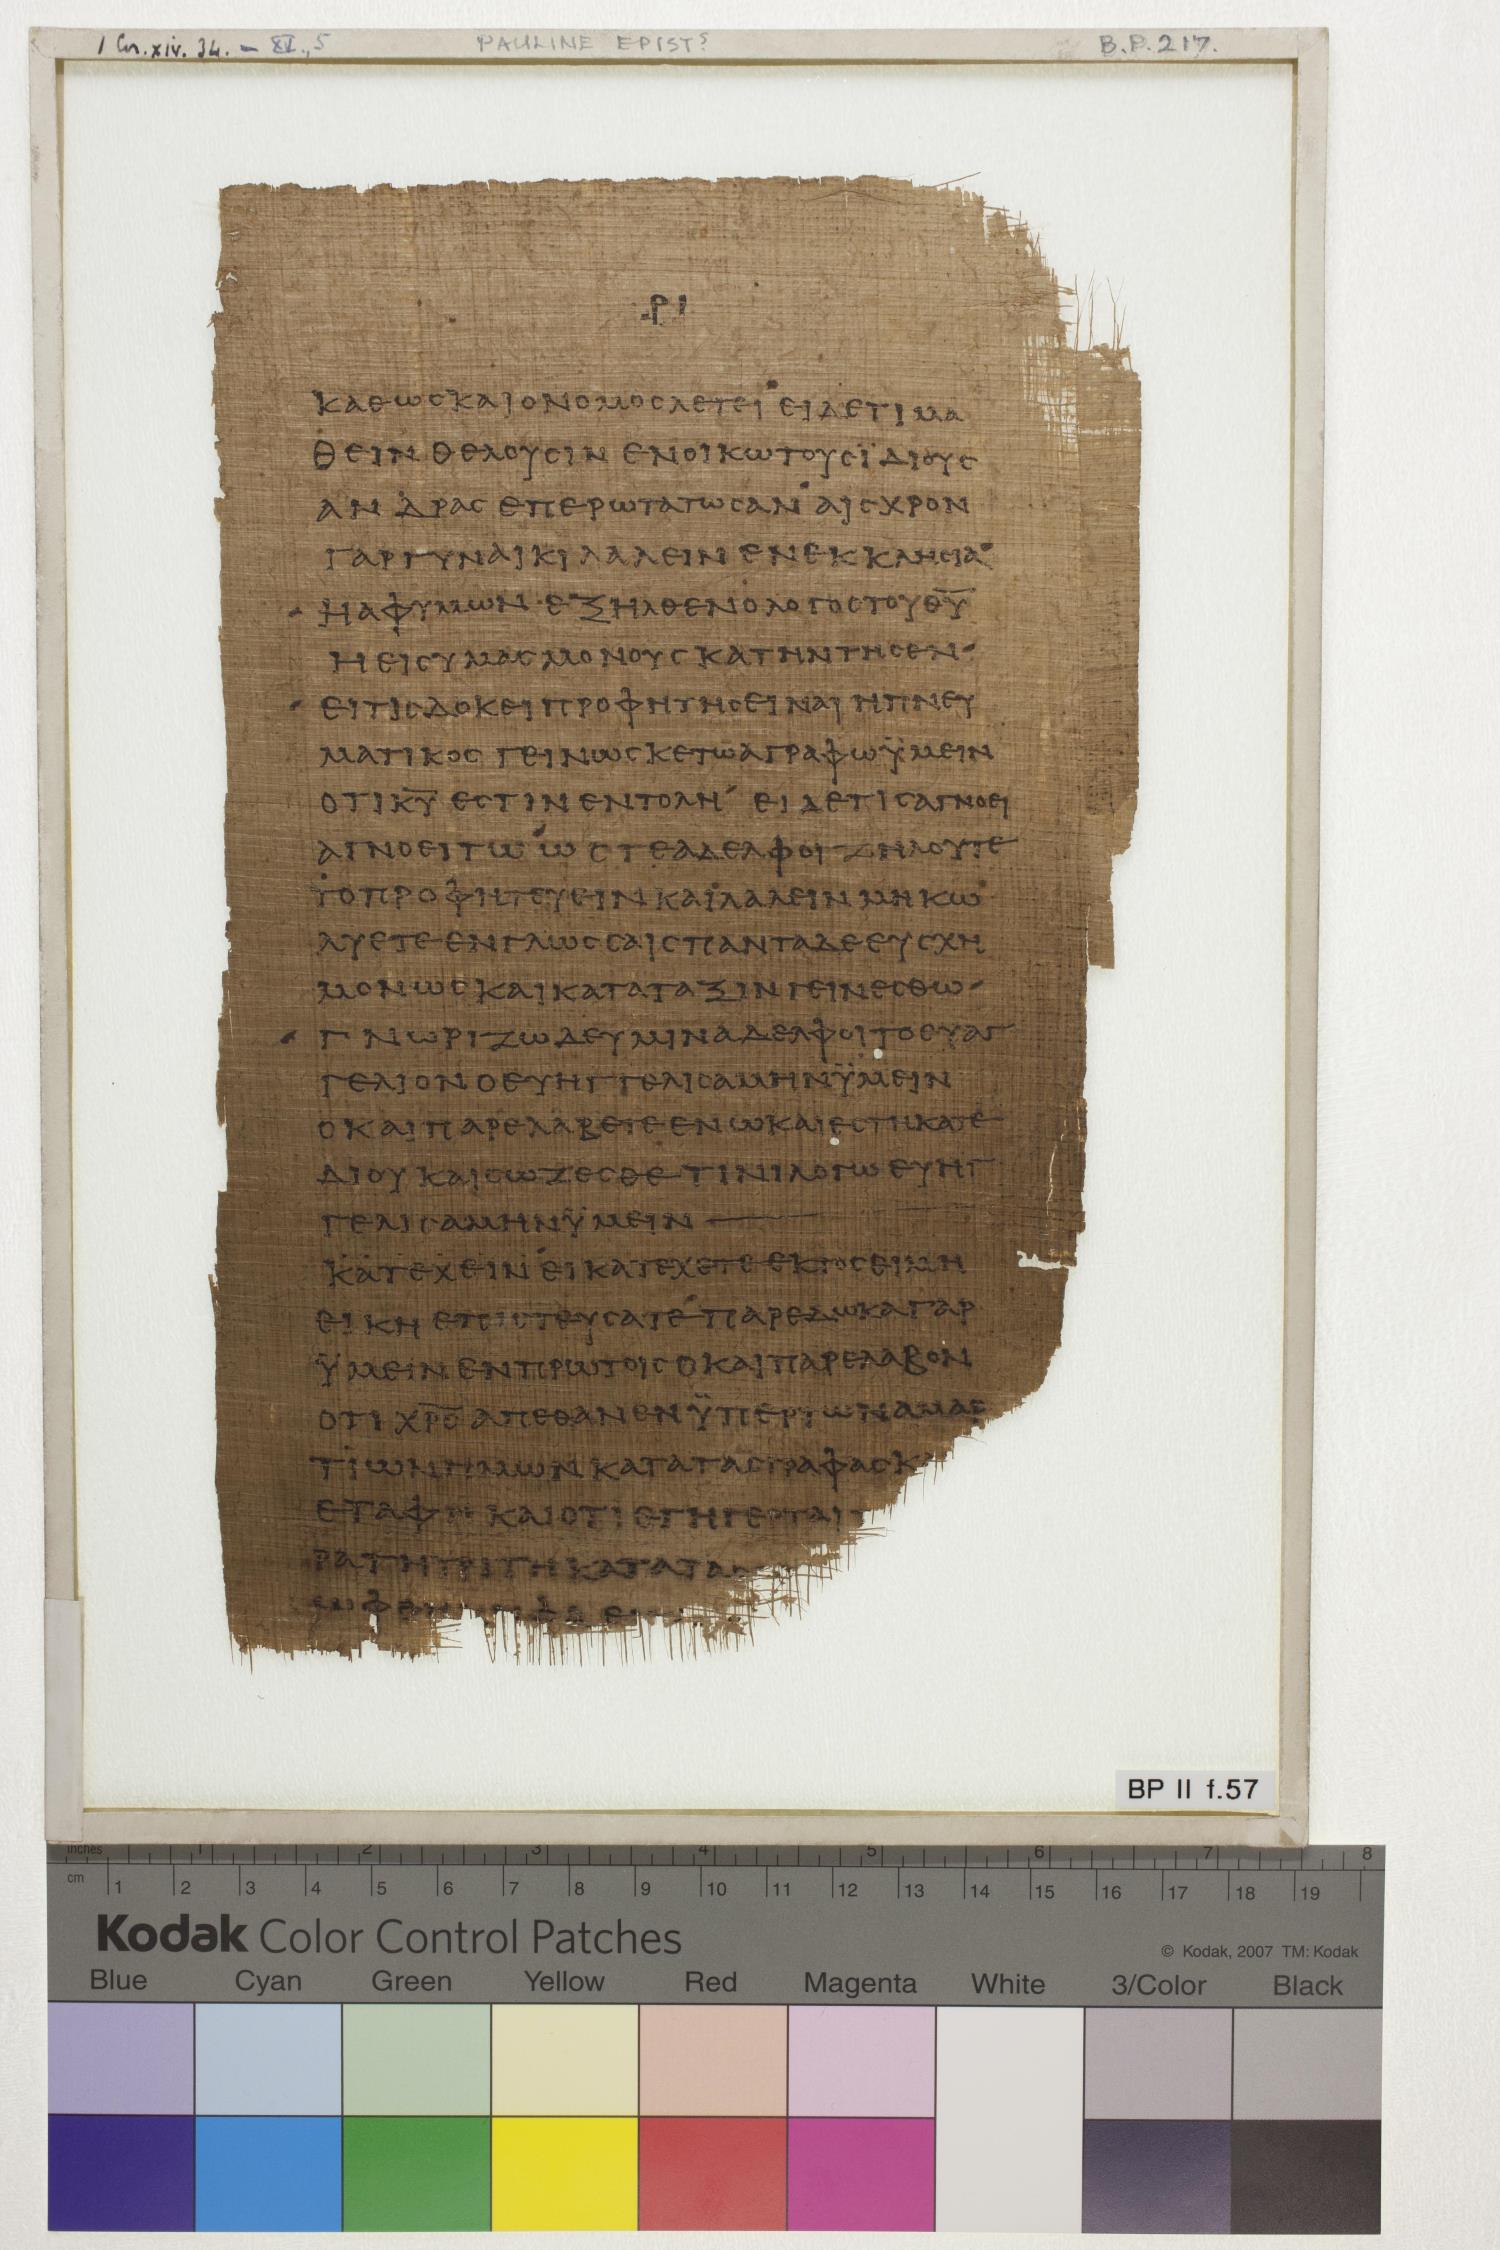 1 Cor. xiv. 34. - XV, 5 PAULINE EPISTS B.P. 217.
ΡΙ
ΚΑΘΩϹΚΑΙΟΝΟΜΟϹΛΕΓΕΙ ΕΙΔΕΤΙΜΑ
ΘΕΙΝΘΕΛΟΥϹΙΝ ΕΝΟΙΚΩΤΟΥϹΪΔΙΟΥϹ
ΑΝΔΡΑϹ ΕΠΕΡΩΤΑΤΩϹΑΝ ΑΙϹΧΡΟΝ
ΓΑΡΓΥΝΑΙΚΙ ΛΑΛΕΙΝ ΕΝΕΚΚΛΗϹΙΑ
ΗΑΦΥΜΩΝ ΕΞΗΛΘΕΝΟΛΟΓΟϹΤΟΥΘ̅Υ̅
ΗΕΙϹΥΜΑϹΜΟΝΟΥϹΚΑΤΗΝΤΗϹΕΝ
ΕΙΤΙϹΔΟΚΕΙΠΡΟΦΗΤΗϹΕΙΝΑΙ ΗΠΝΕΥ
ΜΑΤΙΚΟϹ ΓΕΙΝΩϹΚΕΤΩΑΓΡΑΦΩΫΜΕΙΝ
ΟΤΙΚ̅Υ̅ ΕϹΤΙΝ ΕΝΤΟΛΗ ΕΙΔΕΤΙϹΑΓΝΟΕΙ
ΑΓΝΟΕΙΤΩ ΩϹΤΕΑΔΕΛΦΟΙ ΖΗΛΟΥΤΕ
ΤΟΠΡΟΦΗΤΕΥΕΙΝ ΚΑΙΛΑΛΕΙΝ ΜΗΚΩ
ΛΥΕΤΕ ΕΝΓΛΩϹϹΑΙϹΠΑΝΤΑΔΕΕΥϹΧΗ
ΜΟΝΩϹΚΑΙΚΑΤΑΤΑΞΙΝΓΕΙΝΕϹΘΩ
ΓΝΩΡΙΖΩΔΕΥΜΙΝΑΔΕΛΦΟΙΤΟΕΥΑΓ
ΓΕΛΙΟΝ ΟΕΥΗΓΓΕΛΙϹΑΜΗΝΫΜΕΙΝ
ΟΚΑΙΠΑΡΕΛΑΒΕΤΕΕΝΩΚΑΙΕϹΤΗΚΑΤΕ
ΔΙΟΥΚΑΙϹΩΖΕϹΘΕ ΤΙΝΙΛΟΓΩΕΥΗΓ
ΓΕΛΙϹΑΜΗΝΫΜΕΙΝ
ΚΑΤΕΧΕΙΝ ΕΙΚΑΤΕΧΕΤΕΕΚΤΟϹΕΙΜΗ
ΕΙΚΗ ΕΠΙϹΤΕΥϹΑΤΕ ΠΑΡΕΔΩΚΑΓΑΡ
ΫΜΕΙΝΕΝΠΡΩΤΟΙϹΟΚΑΙΠΑΡΕΛΑΒΟΝ
ΟΤΙΧ̅Ρ̅Ϲ̅ΑΠΕΘΑΝΕΝΫΠΕΡΤΩΝΑΜΑΡ
ΤΙΩΝΗΜΩΝΚΑΤΑΤΑϹΓΡΑΦΑϹΚ
ΕΤΑΦΗ ΚΑΙΟΤΙΕΓΗΓΕΡΤΑΙΤ
ΡΑΤΗΤΡΙΤΗΚΑΤΑΤΑ
BP II f.57
inches 1 2 3 4 5 6 7 8
cm 1 2 3 4 5 6 7 8 9 10 11 12 13 14 15 16 17 18 19
Kodak Color Control Patches
© Kodak, 2007 TM: Kodak
Blue Cyan Green Yellow Red Magenta White 3/Color Black